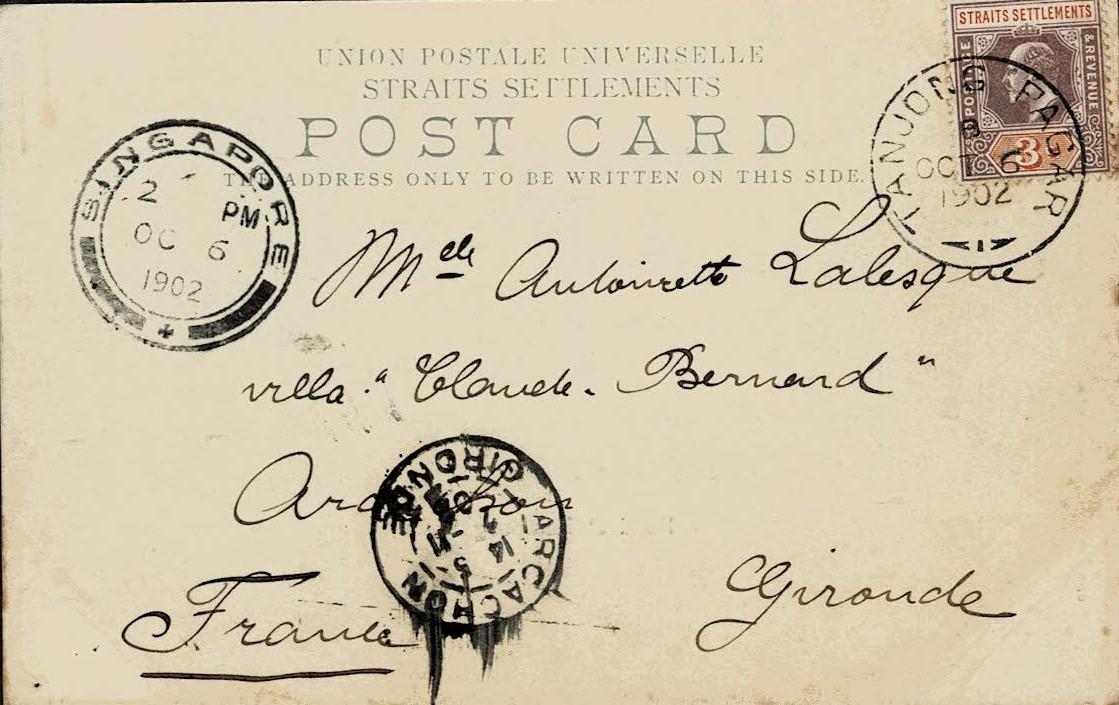 STRAITS SETTLEMENTS
POSTAGE & REVENUE
3
UNION POSTALE UNIVERSELLE
STRAITS SETTLEMENTS
POST CARD
THE ADDRESS ONLY TO BE WRITTEN ON THIS SIDE.
TANJONG PAGAR
OCT 6
1902
SINGAPORE
2 PM
OC 6
1902
Melle Antoinette Lalesque
villa "Claude-Bernard"
Arcachon
Gironde
France
ARCACHON
GIRONDE